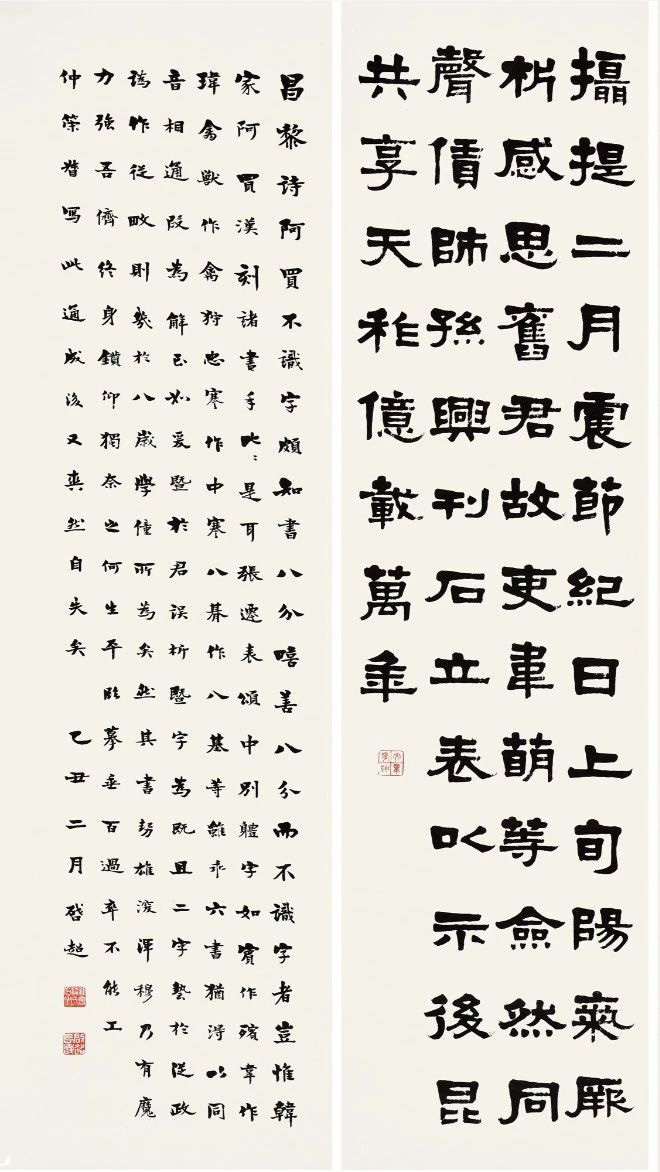 攝提二月震節紀日上旬陽氣厥
析感思舊君故吏韋萌等僉然同
聲債師孫興刊石立表以示後昆
共享天祚億載萬年
昌黎詩阿買不識字頗知書八分嘻善八分而不識字者豈惟韓
家阿買漢刻諸書手比比是耳張遷表頌中別體字如賓作殯韋作
瑋禽獸作禽狩忠寒作中寒八棊作八基等雖乖六書猶得以同
音相通段為解已如爰暨於君誤析暨字為既且二字藝於從政
譌作從畋則幾於八歲學僮所為矣然其書雄浚渾穆乃有魔
力強吾儕終身鑽仰獨奈之何生平臨摹垂百過卒不能工
仲策督寫此通成後又爽然自失矣 乙丑二月啓超